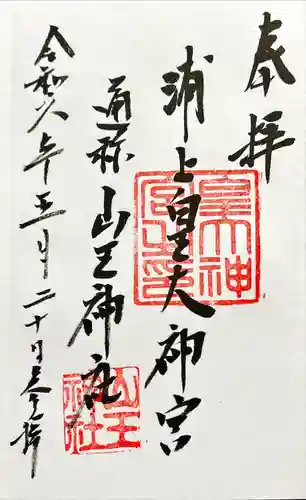 奉拝
浦上皇大神宮
通称 山王神社
令和六年五月二十日参拝
皇大神宮之印
山王神社